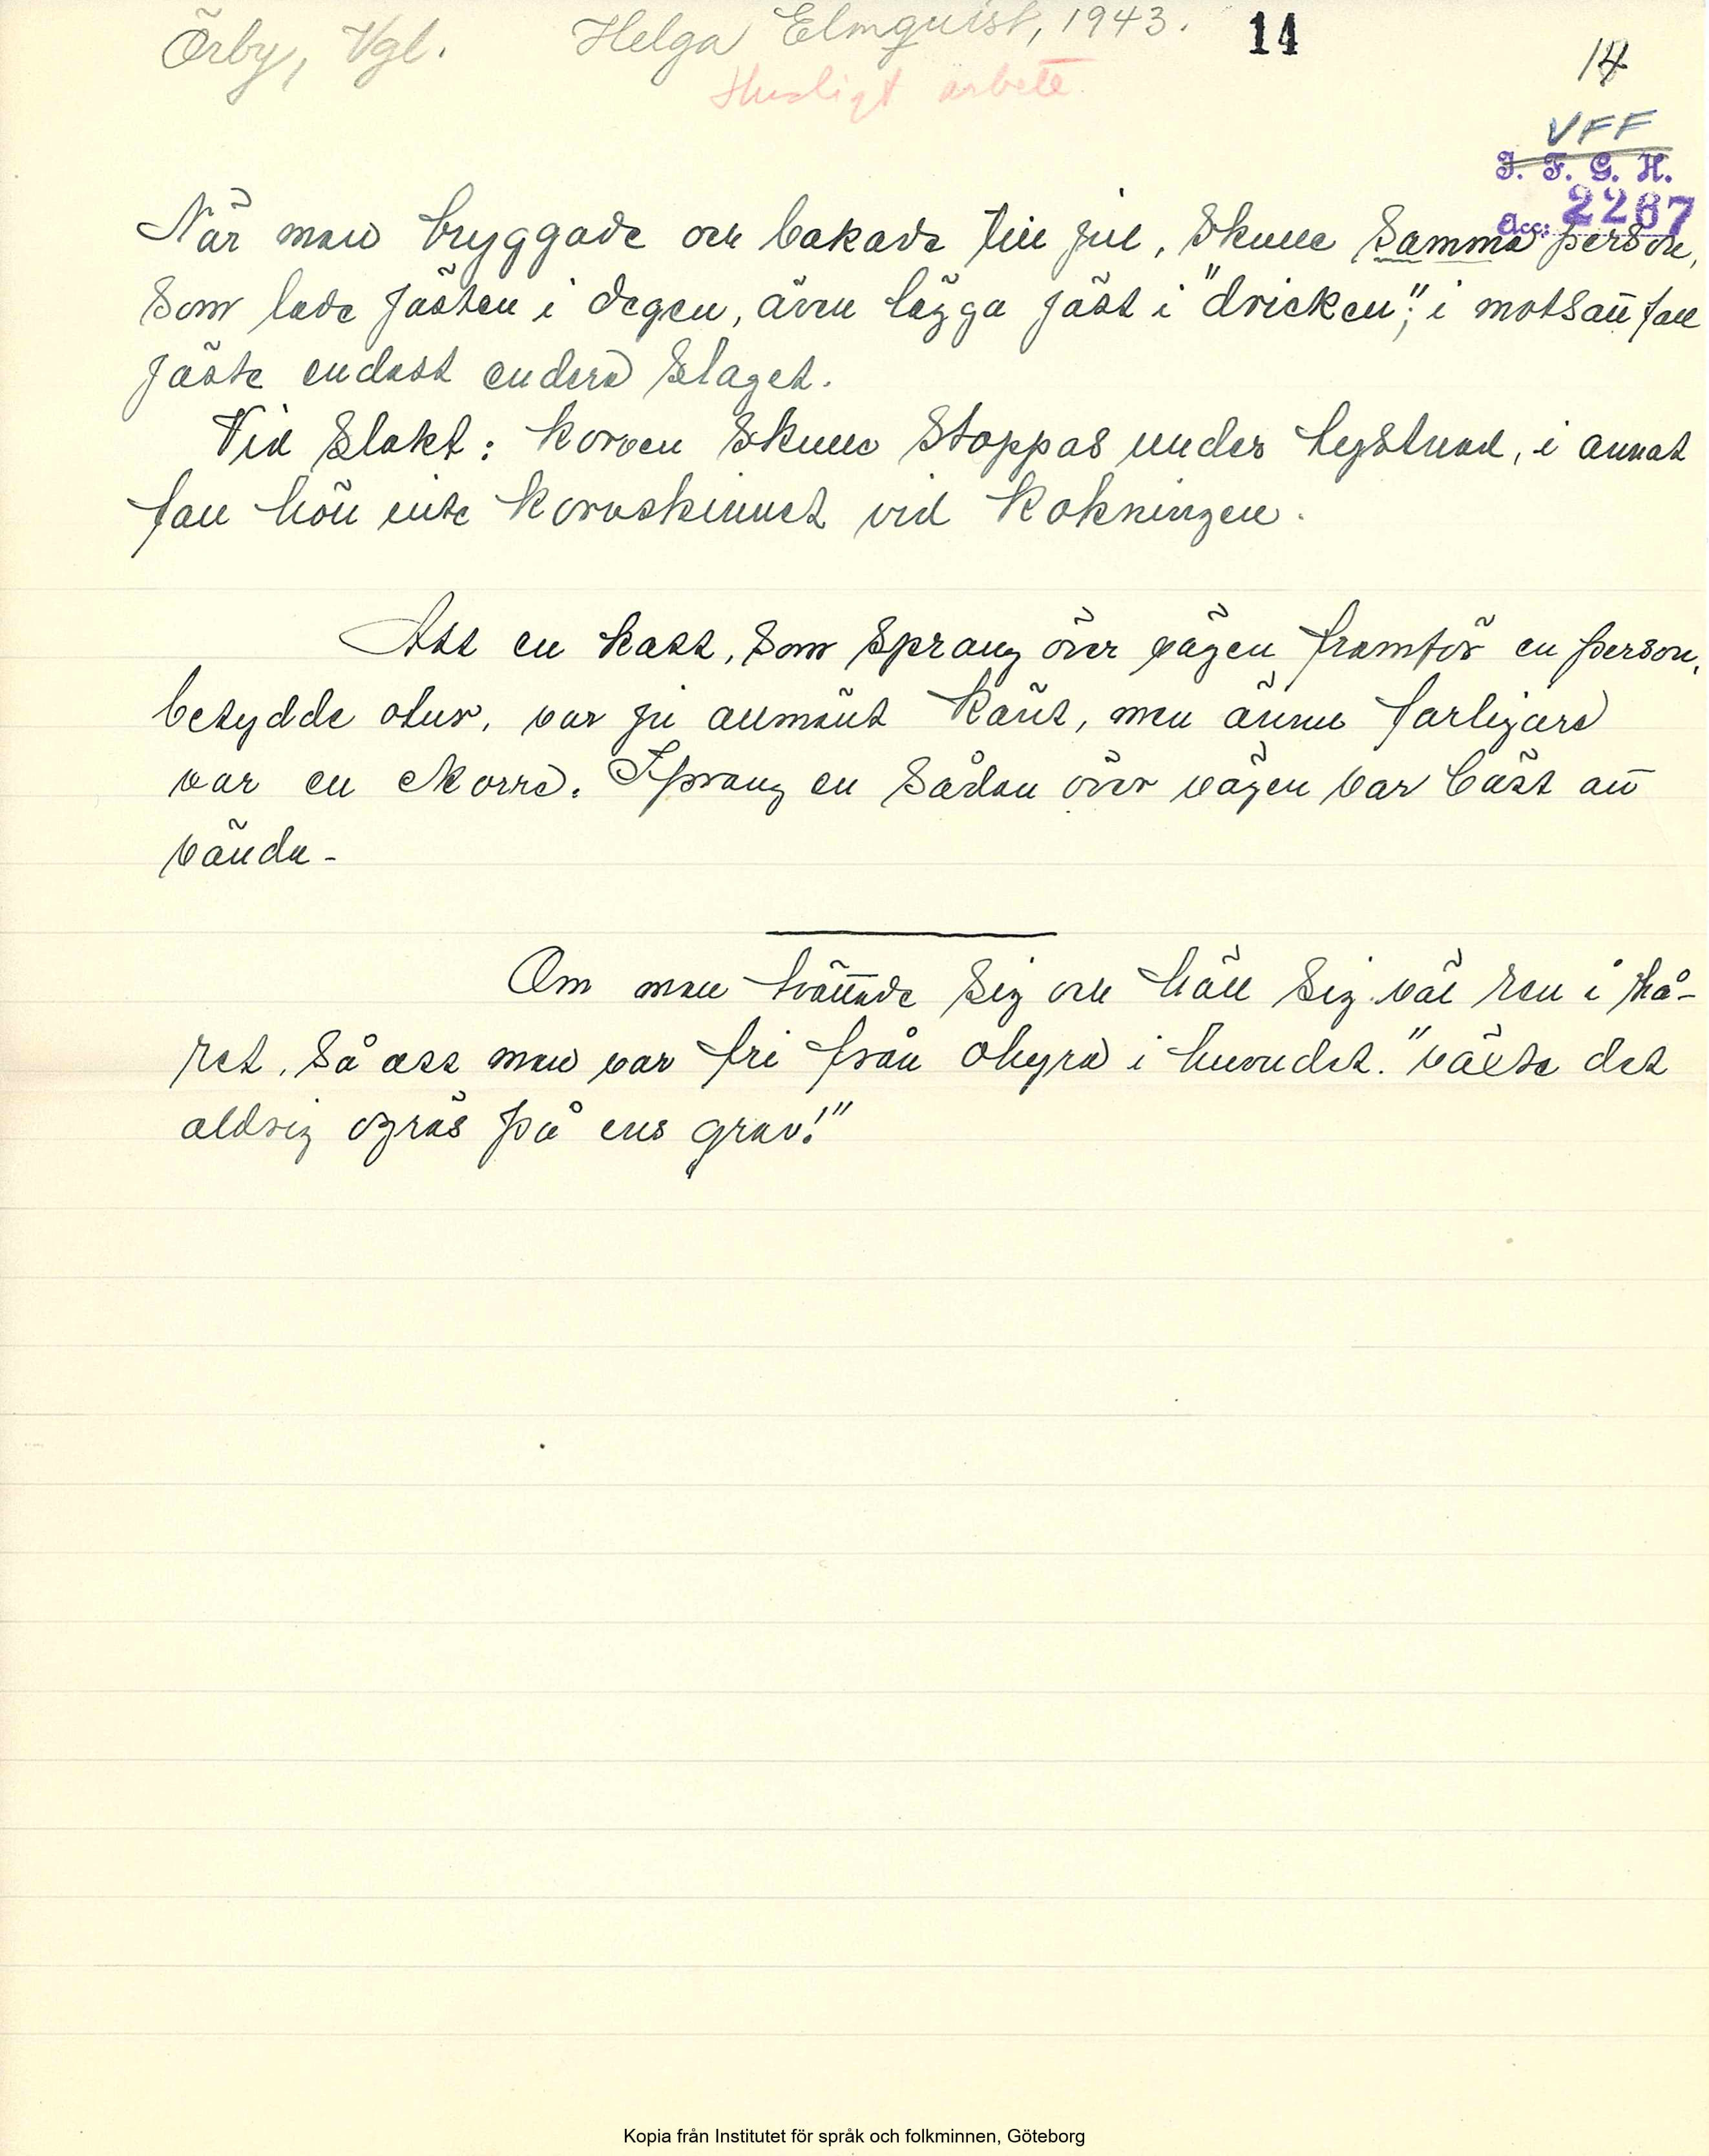 Örby, Vgl. Helga Elmquist, 1943. 14
14
Husligt arbete.
VFF
I. F. G. H.
Acc: 2267
När man bryggade och bakade till jul, skulle samma person,
som lade jästen i degen, även lägga jäst i "dricken"; i motsatt fall
jäste endast endera slaget.
Vid slakt: korven skulle stoppas under tystnad, i annat
fall höll inte korvskinnet vid kokningen.
Att en katt, som sprang över vägen framför en person,
betydde otur, var ju allmänt känt, men ännu farligare
var en ekorre. Sprang en sådan över vägen var bäst att
vända-
Om man tvättade sig och höll sig väl ren i hå-
ret, så att man var fri från ohyra i huvudet. "växte det
aldrig ogräs på ens grav!"
Kopia från Institutet för språk och folkminnen, Göteborg